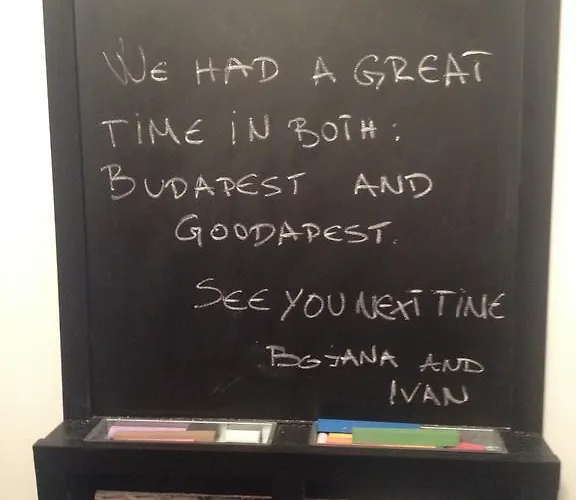 WE HAD A GREAT
TIME IN BOTH:
BUDAPEST AND
GOODAPEST.
SEE YOU NEXT TIME
BOJANA AND
IVAN